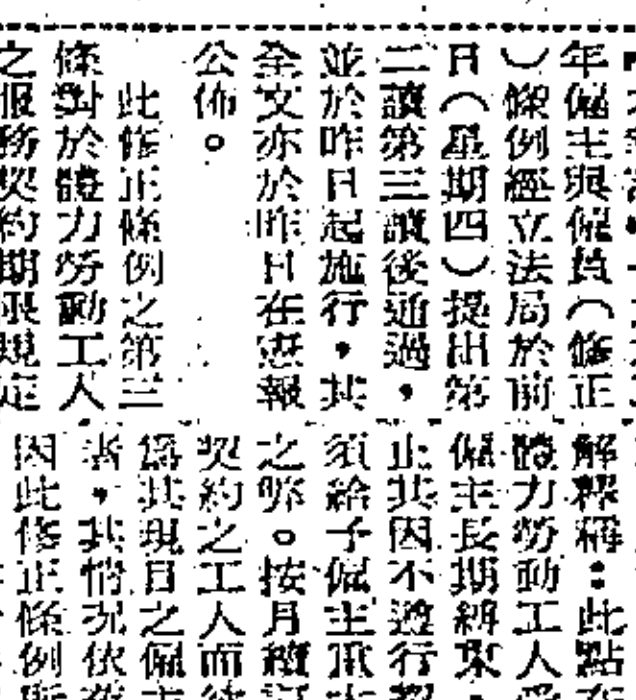 年僱主與僱員（修正
）條例經立法局於前
日（星期四）提出第
二讀第三讀後通過，
並於昨日起施行，其
全文亦於昨日在憲報
公佈。
此修正條例之第三
條對於體力勞動工人
之服務契約期限規定
解釋稱：此點
體力勞動工人
僱主長期綁束
止其因不遵行
須給予僱主
之弊。按月續
契約之工人而
為其現日之僱
者，其情況依
因此修正條例